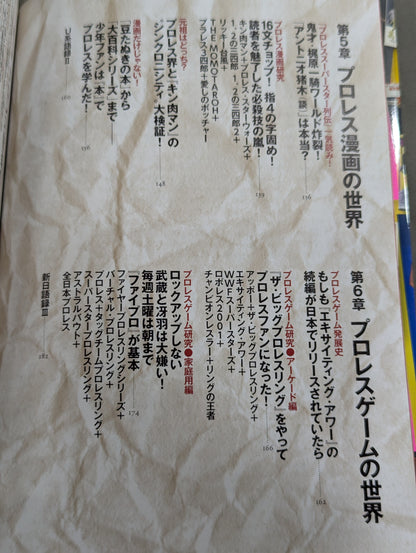 第5章 プロレス漫画の世界
プロレススーパースター列伝・一気読み！
鬼才・梶原一騎ワールド炸裂！
「アントニオ猪木(談)」は本当？
136
プロレス漫画研究
16文チョップ！ 指4の字固め！
読者を魅了した必殺技の嵐！
キン肉マン＋プロレス・スターウォーズ＋
1、2の三四郎、1、2の三四郎2＋
リッキー台風＋
THE MOMOTAROH＋
プラレス3四郎＋愛しのボッチャー
139
元祖はどっち？
プロレス界と『キン肉マン』の
“シンクロニシティ”大検証！
148
漫画だけじゃない！
「豆たぬきの本」から
「大百科シリーズ」まで
少年ファンは“本”で
プロレスを学んだ！
156
U系語録Ⅱ
160
第6章 プロレスゲームの世界
プロレスゲーム発展史
もしも『エキサイティング・アワー』の
続編が日本でリリースされていたら
162
プロレスゲーム研究●アーケード編
『ザ・ビッグプロレスリング』をやって
プロレスファンになった！
166
アッポー＋ザ・ビッグプロレスリング＋
エキサイティング・アワー＋
WWFスーパースターズ＋
ロボレス2001＋
チャンピオンレスラー＋リングの王者
プロレスゲーム研究●家庭用編
ロックアップしない
武蔵と冴羽は大嫌い！
毎週土曜は朝まで
『ファイプロ』が基本
174
ファイヤープロレスリングシリーズ＋
バーチャル・プロレスリング＋
プロレス＋タッグチームプロレスリング＋
スーパースタープロレスリング＋
アストラルバウト＋
全日本プロレス
新日語録Ⅲ
182